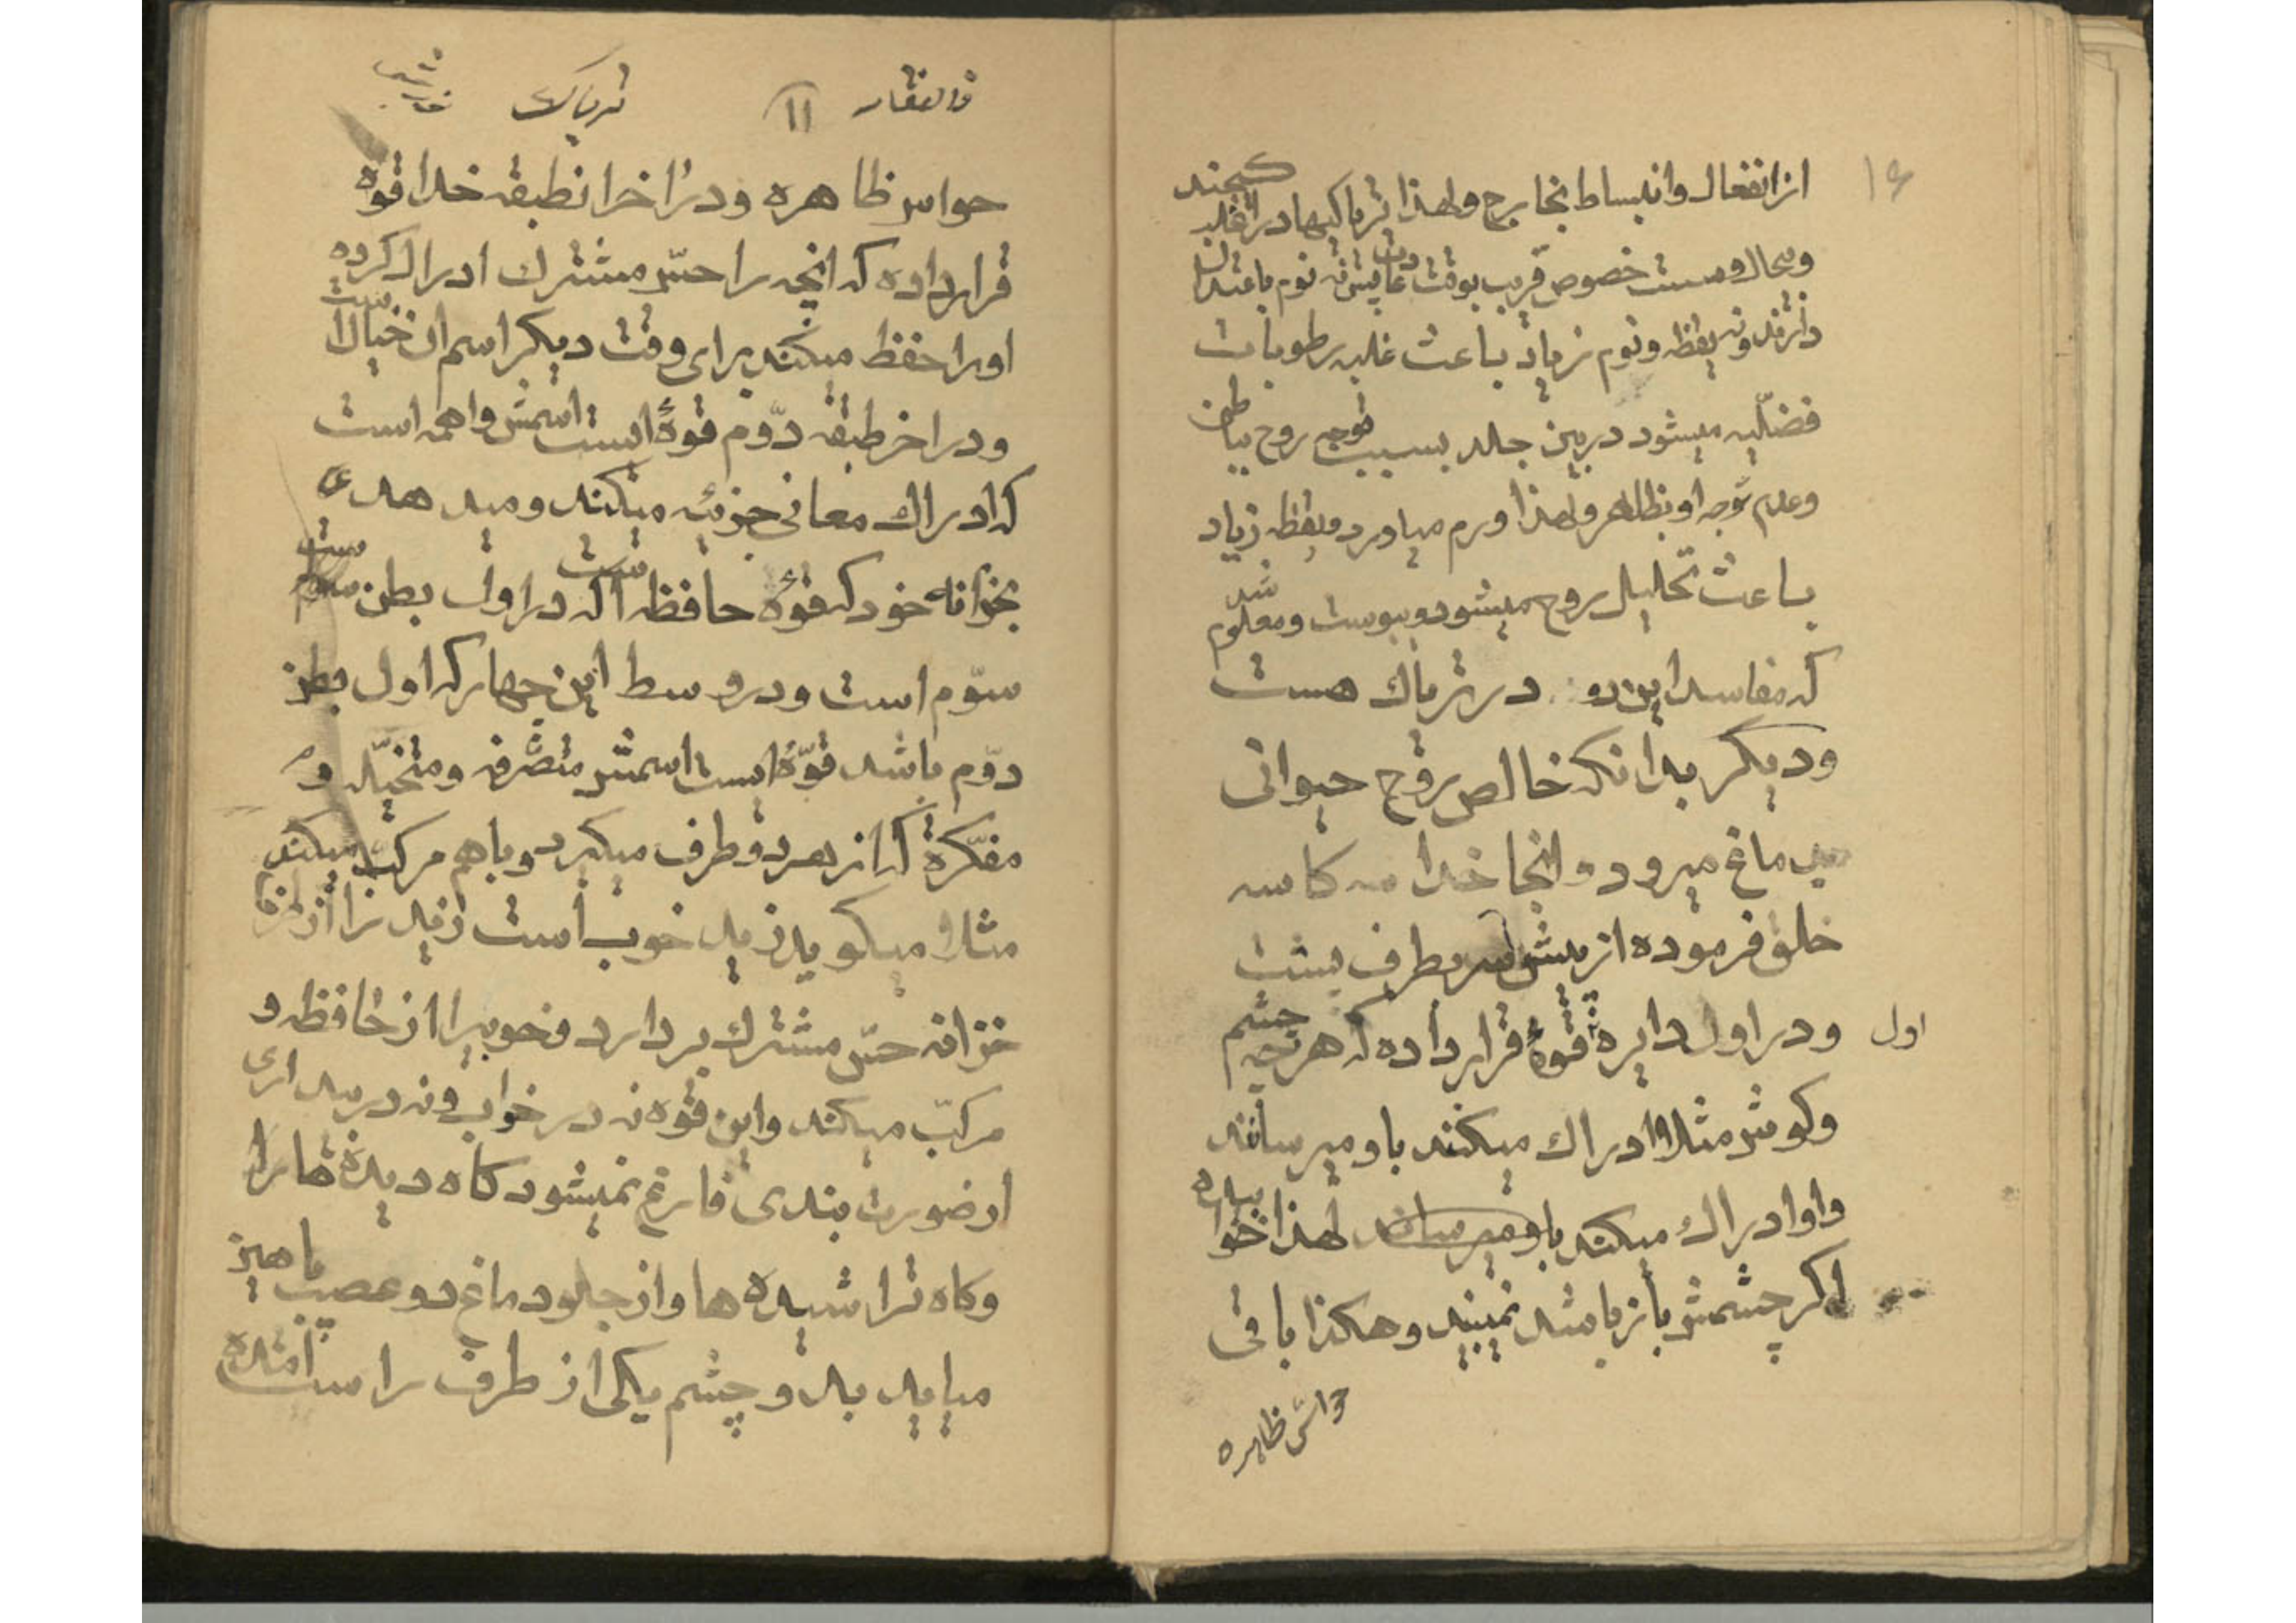 ۱۶
از انفعال و انبساط بخارج و لهذا تریاکیها در اغلب
و بیحال و سست خصوص قریب بوقت نوم باعتدال
دارند و نه یقظه و نوم زیاد باعث غلبه رطوبات
فضلّیه میشود در بین جلد بسبب توجه روح بباطن
و عدم توجه او بظاهر و لهذا ورم میاورد و یقظه زیاد
باعث تحلیل روح میشود و یبوست و معلوم شد
که مفاسد این دو در تریاک هست
و دیگر بدانکه خالص روح حیوانی
بدماغ میرود و انجا خدا سه کاسه
خلق فرموده از پیش سر بطرف پشت
اول و در اول دایره قوهٔ قرار داده که هر چه چشم
و کوش مثلا ادراک میکند باو میرسانند
و او ادراک میکند باو میرساند لهذا خوابیده
اکر چشمش باز باشد نمیبیند و هکذا باقی
حواس ظاهره
۱۱ تریاک
حواس ظاهره و در اخر انطبقه خدا قوه
قرار داده که انچه را حسّ مشترک ادراک کرده
او را حفظ میکند برای وقت دیکر اسم ان خیالست
و در اخر طبقه دوّم قوهٔ ایست اسمش واهمه است
که ادراک معانی جزئیه میکند و میدهد
بخزانه خود که قوهٔ حافظه است که در اول بطن
سوّم است و در وسط این چهار که اول بطن
دوّم باشد قوّهٔ ایست اسمش متصّرفه و متخیّله و
مفکّرة که از هر دو طرف میکیرد و باهم مرکب میکند
مثلا میکوید زید خوب است زید را از طرف
خزانه حسّ مشترک بردارد و خوبیرا از حافظه و
مرکبّ میکند و این قوه نه در خواب و نه در بیداری
از صورت بندی فارغ نمیشود کاه دیده ها را
و کاه تراشیده ها و از جلو دماغ دو عصب
میاید بدو چشم یکی از طرف راست امده